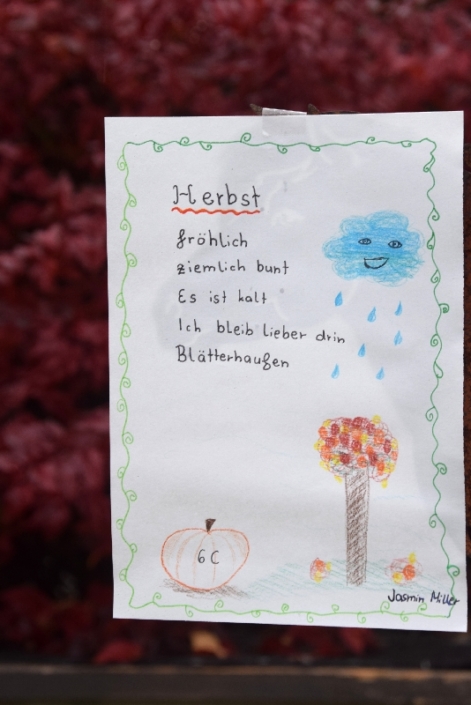 Herbst
fröhlich
ziemlich bunt
Es ist kalt
Ich bleib lieber drin
Blätterhaufen
6C
Jasmin Miller